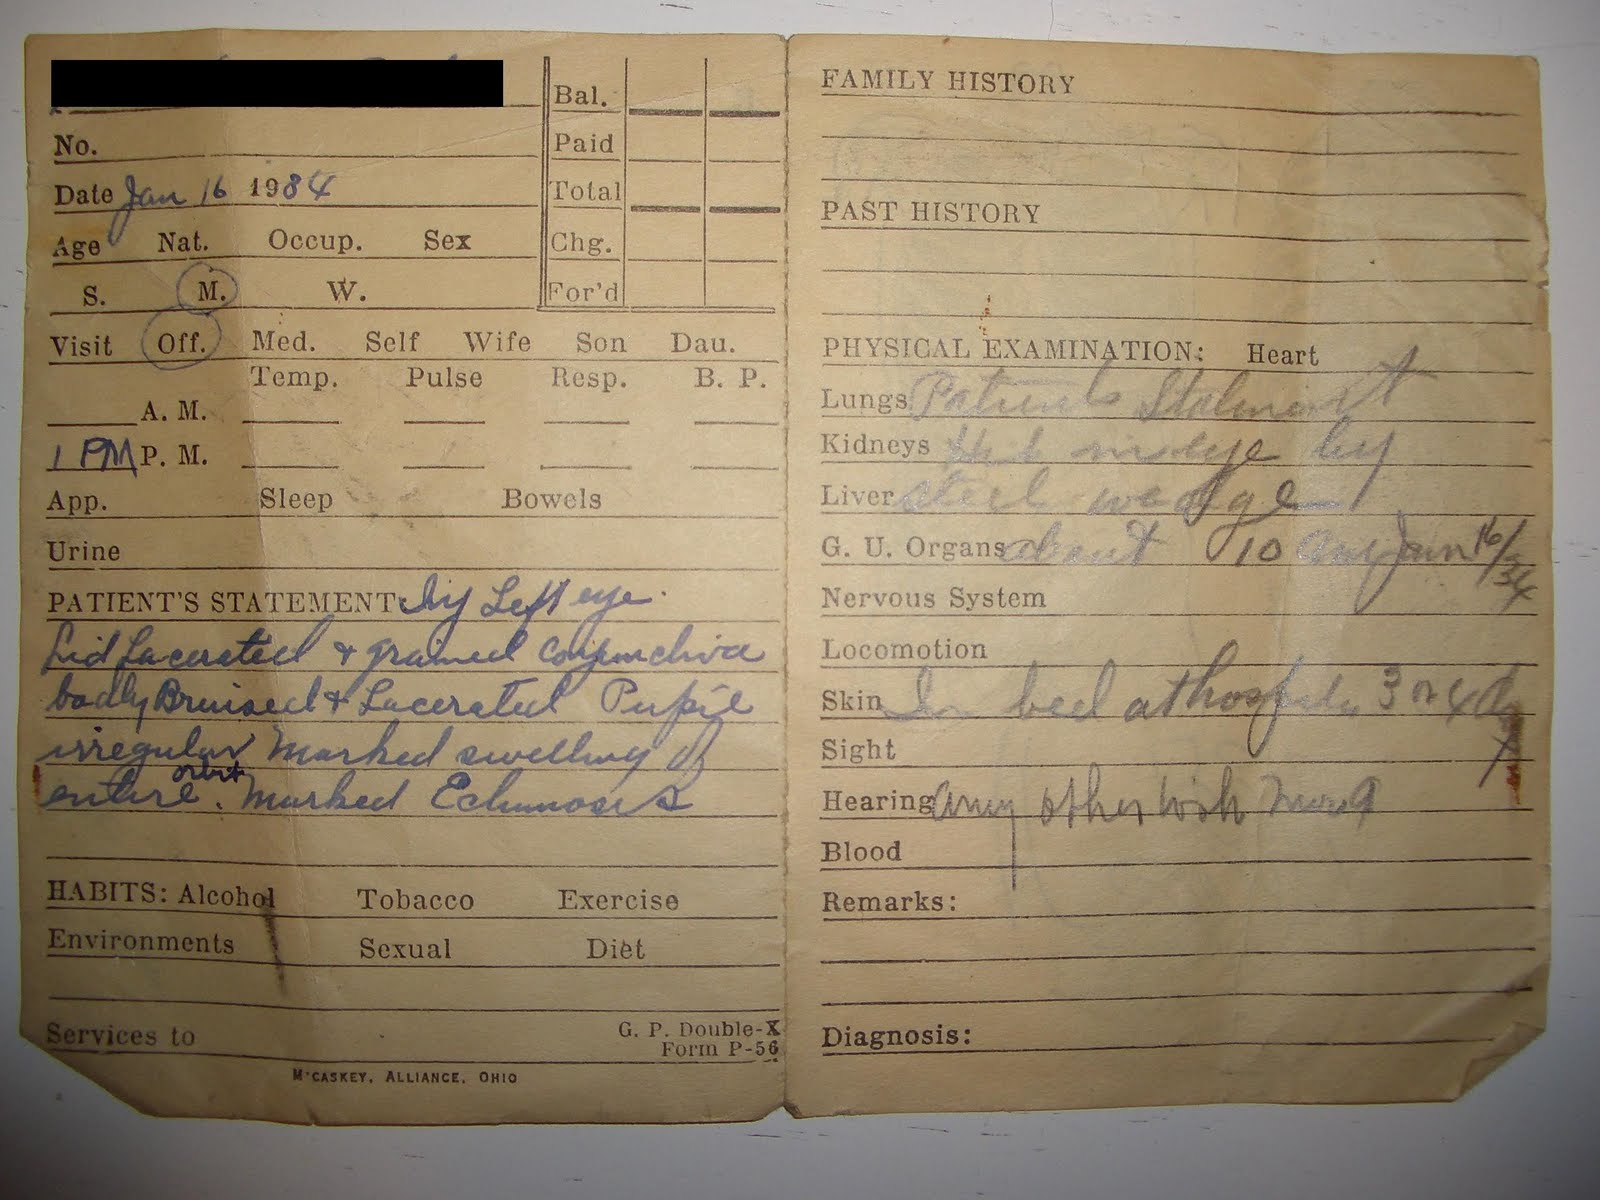 No.
Date Jan 16 1934
Age Nat. Occup. Sex
S. M. W.
Bal.
Paid
Total
Chg.
For'd
Visit Off. Med. Self Wife Son Dau.
Temp. Pulse Resp. B. P.
A. M.
1 PM P. M.
App. Sleep Bowels
Urine
PATIENT'S STATEMENT: Left eye.
Lid Lacerated + conjunctiva
badly Bruised + Lacerated Pupil
irregular Marked swelling of
entire orbit. Marked Echimosis
HABITS: Alcohol Tobacco Exercise
Environments Sexual Diet
Services to
G. P. Double-X
Form P-56
McCASKEY, ALLIANCE, OHIO
FAMILY HISTORY
PAST HISTORY
PHYSICAL EXAMINATION: Heart
Lungs Patients Statment
Kidneys Hit in eye by
Liver steel wedge
G. U. Organs about 10 am Jan 16/34
Nervous System
Locomotion
Skin In bed at hospital 3 or 4 d
Sight
Hearing Any other
Blood
Remarks:
Diagnosis: